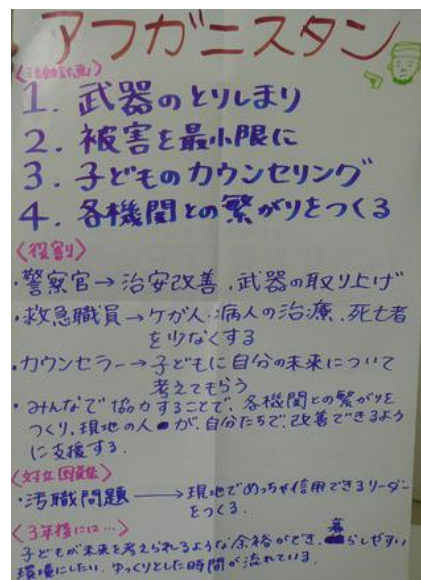 アフガニスタン
〈活動計画〉
1. 武器のとりしまり
2. 被害を最小限に
3. 子どものカウンセリング
4. 各機関との繋がりをつくる
〈役割〉
・警察官→治安改善、武器の取り上げ
・救急職員→ケガ人・病人の治療、死亡者
を少なくする
・カウンセラー→子どもに自分の未来について
考えてもらう
・みんなで協力することで、各機関との繋がりを
つくり、現地の人が、自分たちで、改善できるよう
に支援する.
〈対立・困難〉
・汚職問題→現地でめっちゃ信用できるリーダー
をつくる.
〈3年後には…〉
子どもが未来を考えられるような余裕ができ、暮らしやすい
環境にしたい. ゆっくりとした時間が流れている.